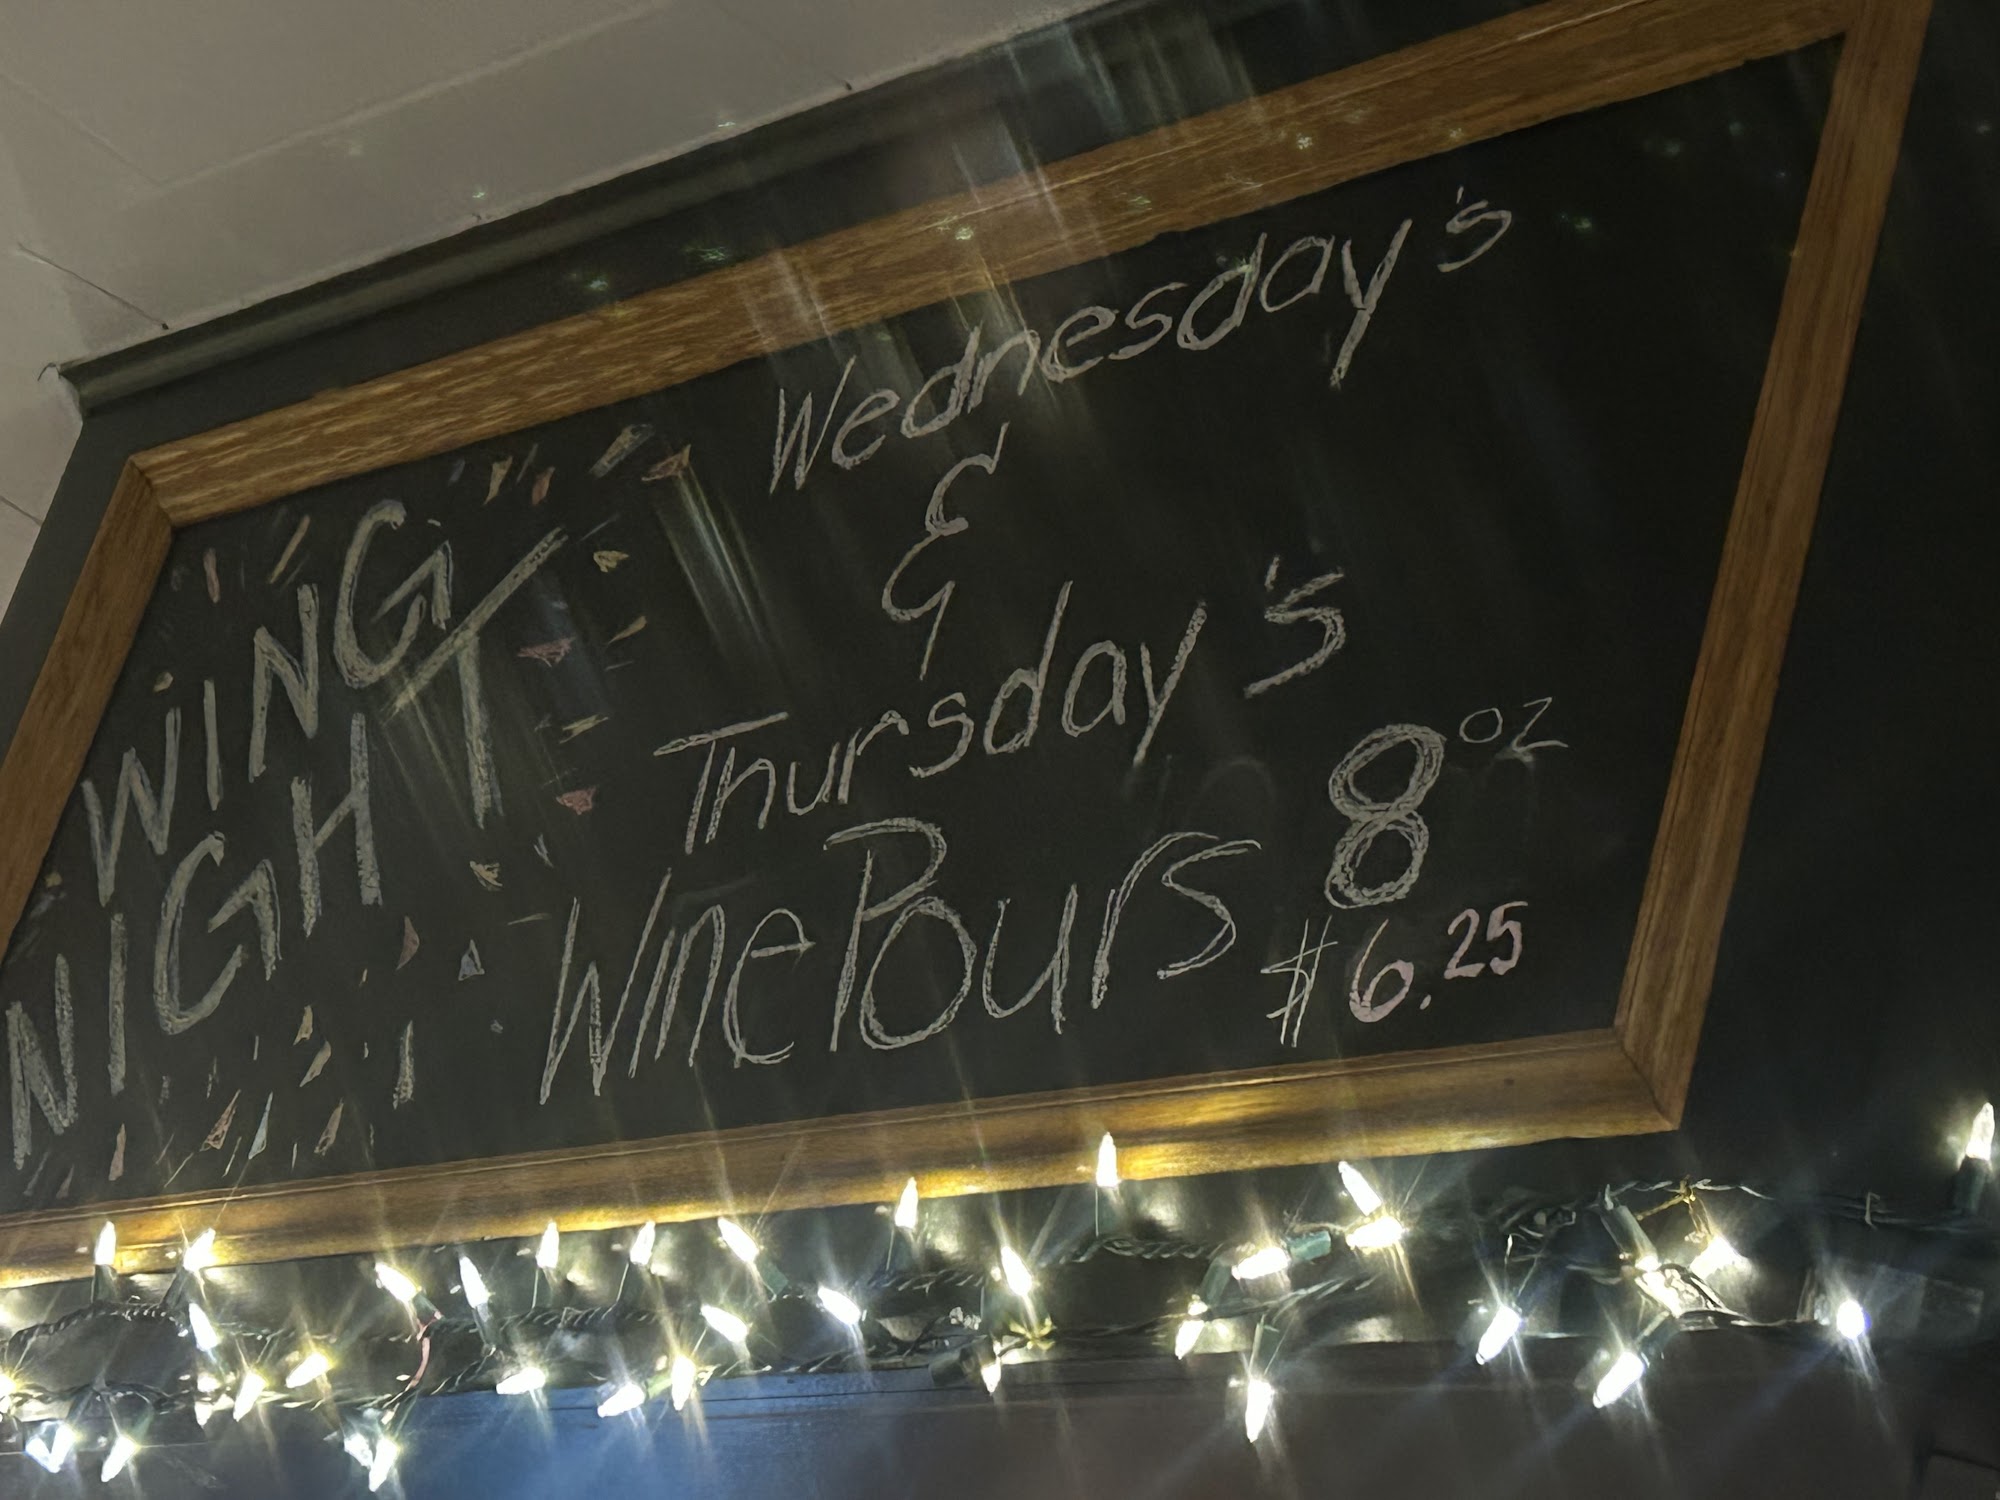 WING
NIGHT
Wednesday's
&
Thursday's
Wine Pours 8 oz
$6.25